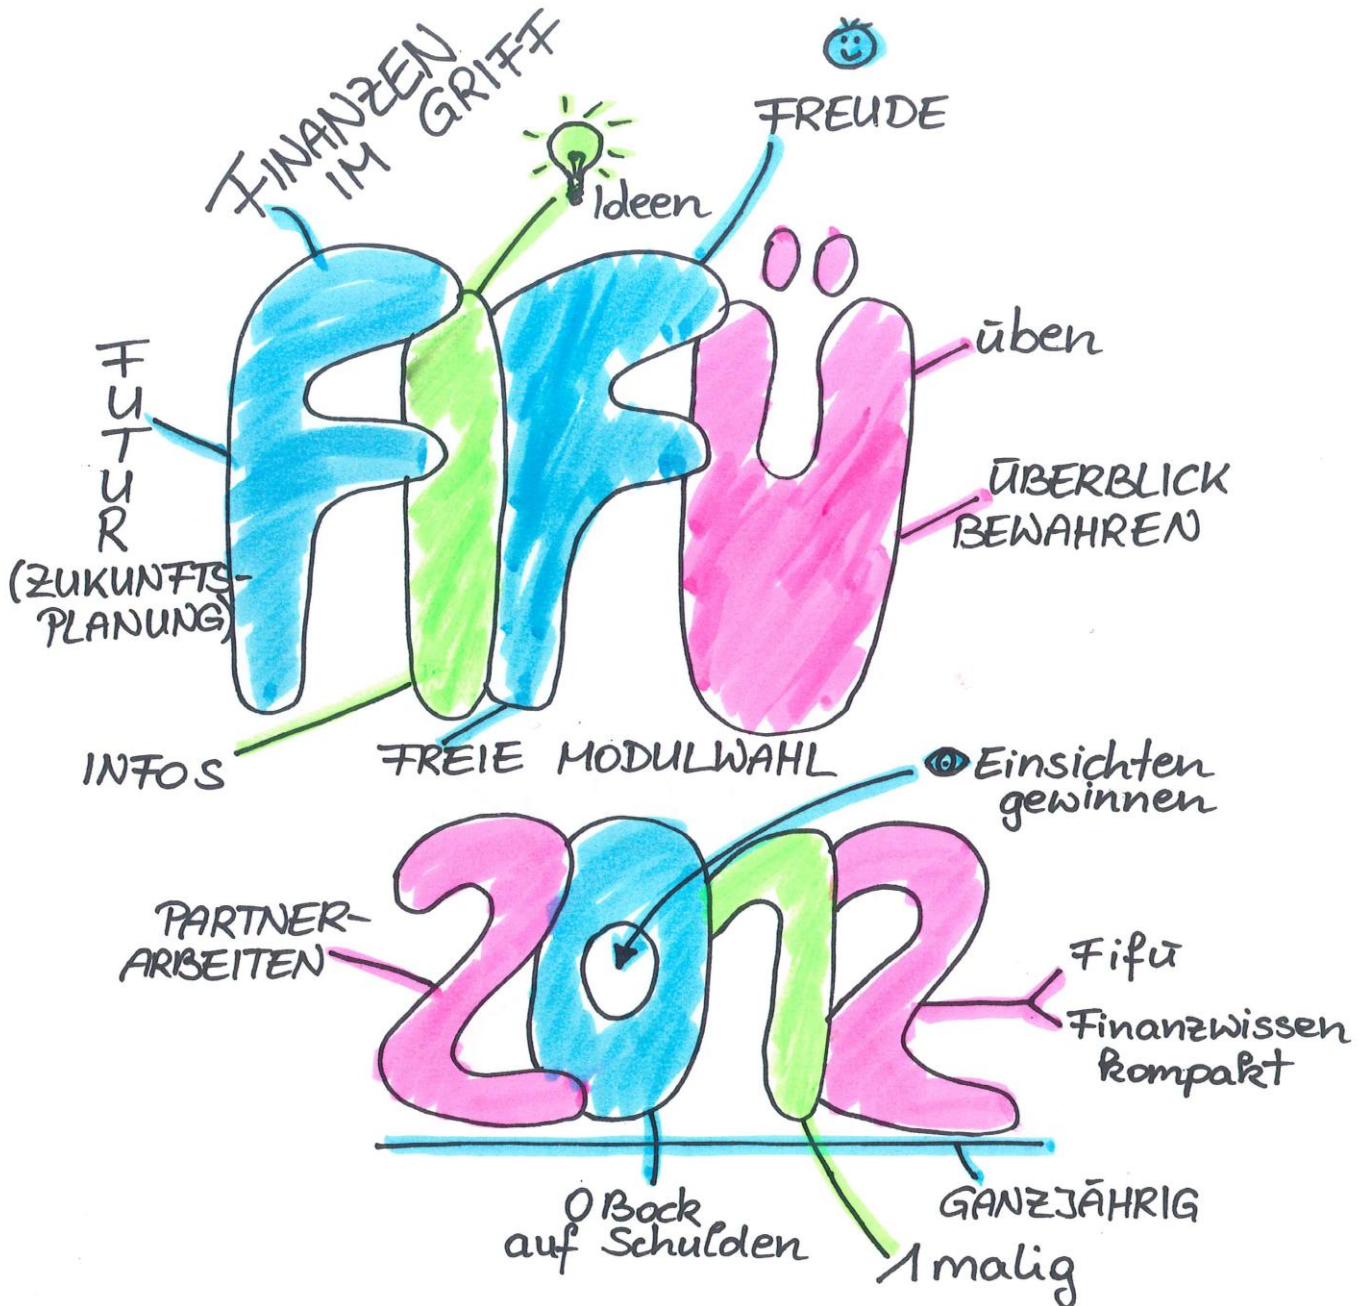 FINANZEN
IM GRIFF
Ideen
FREUDE
FIFÜ
FUTUR
(ZUKUNFTS-
PLANUNG)
üben
ÜBERBLICK
BEWAHREN
INFOS
FREIE MODULWAHL
Einsichten
gewinnen
2012
PARTNER-
ARBEITEN
Fifü
Finanzwissen
kompakt
0 Bock
auf Schulden
GANZJÄHRIG
1malig